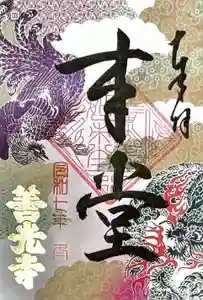 奉拝
本堂
令和七年
善光寺